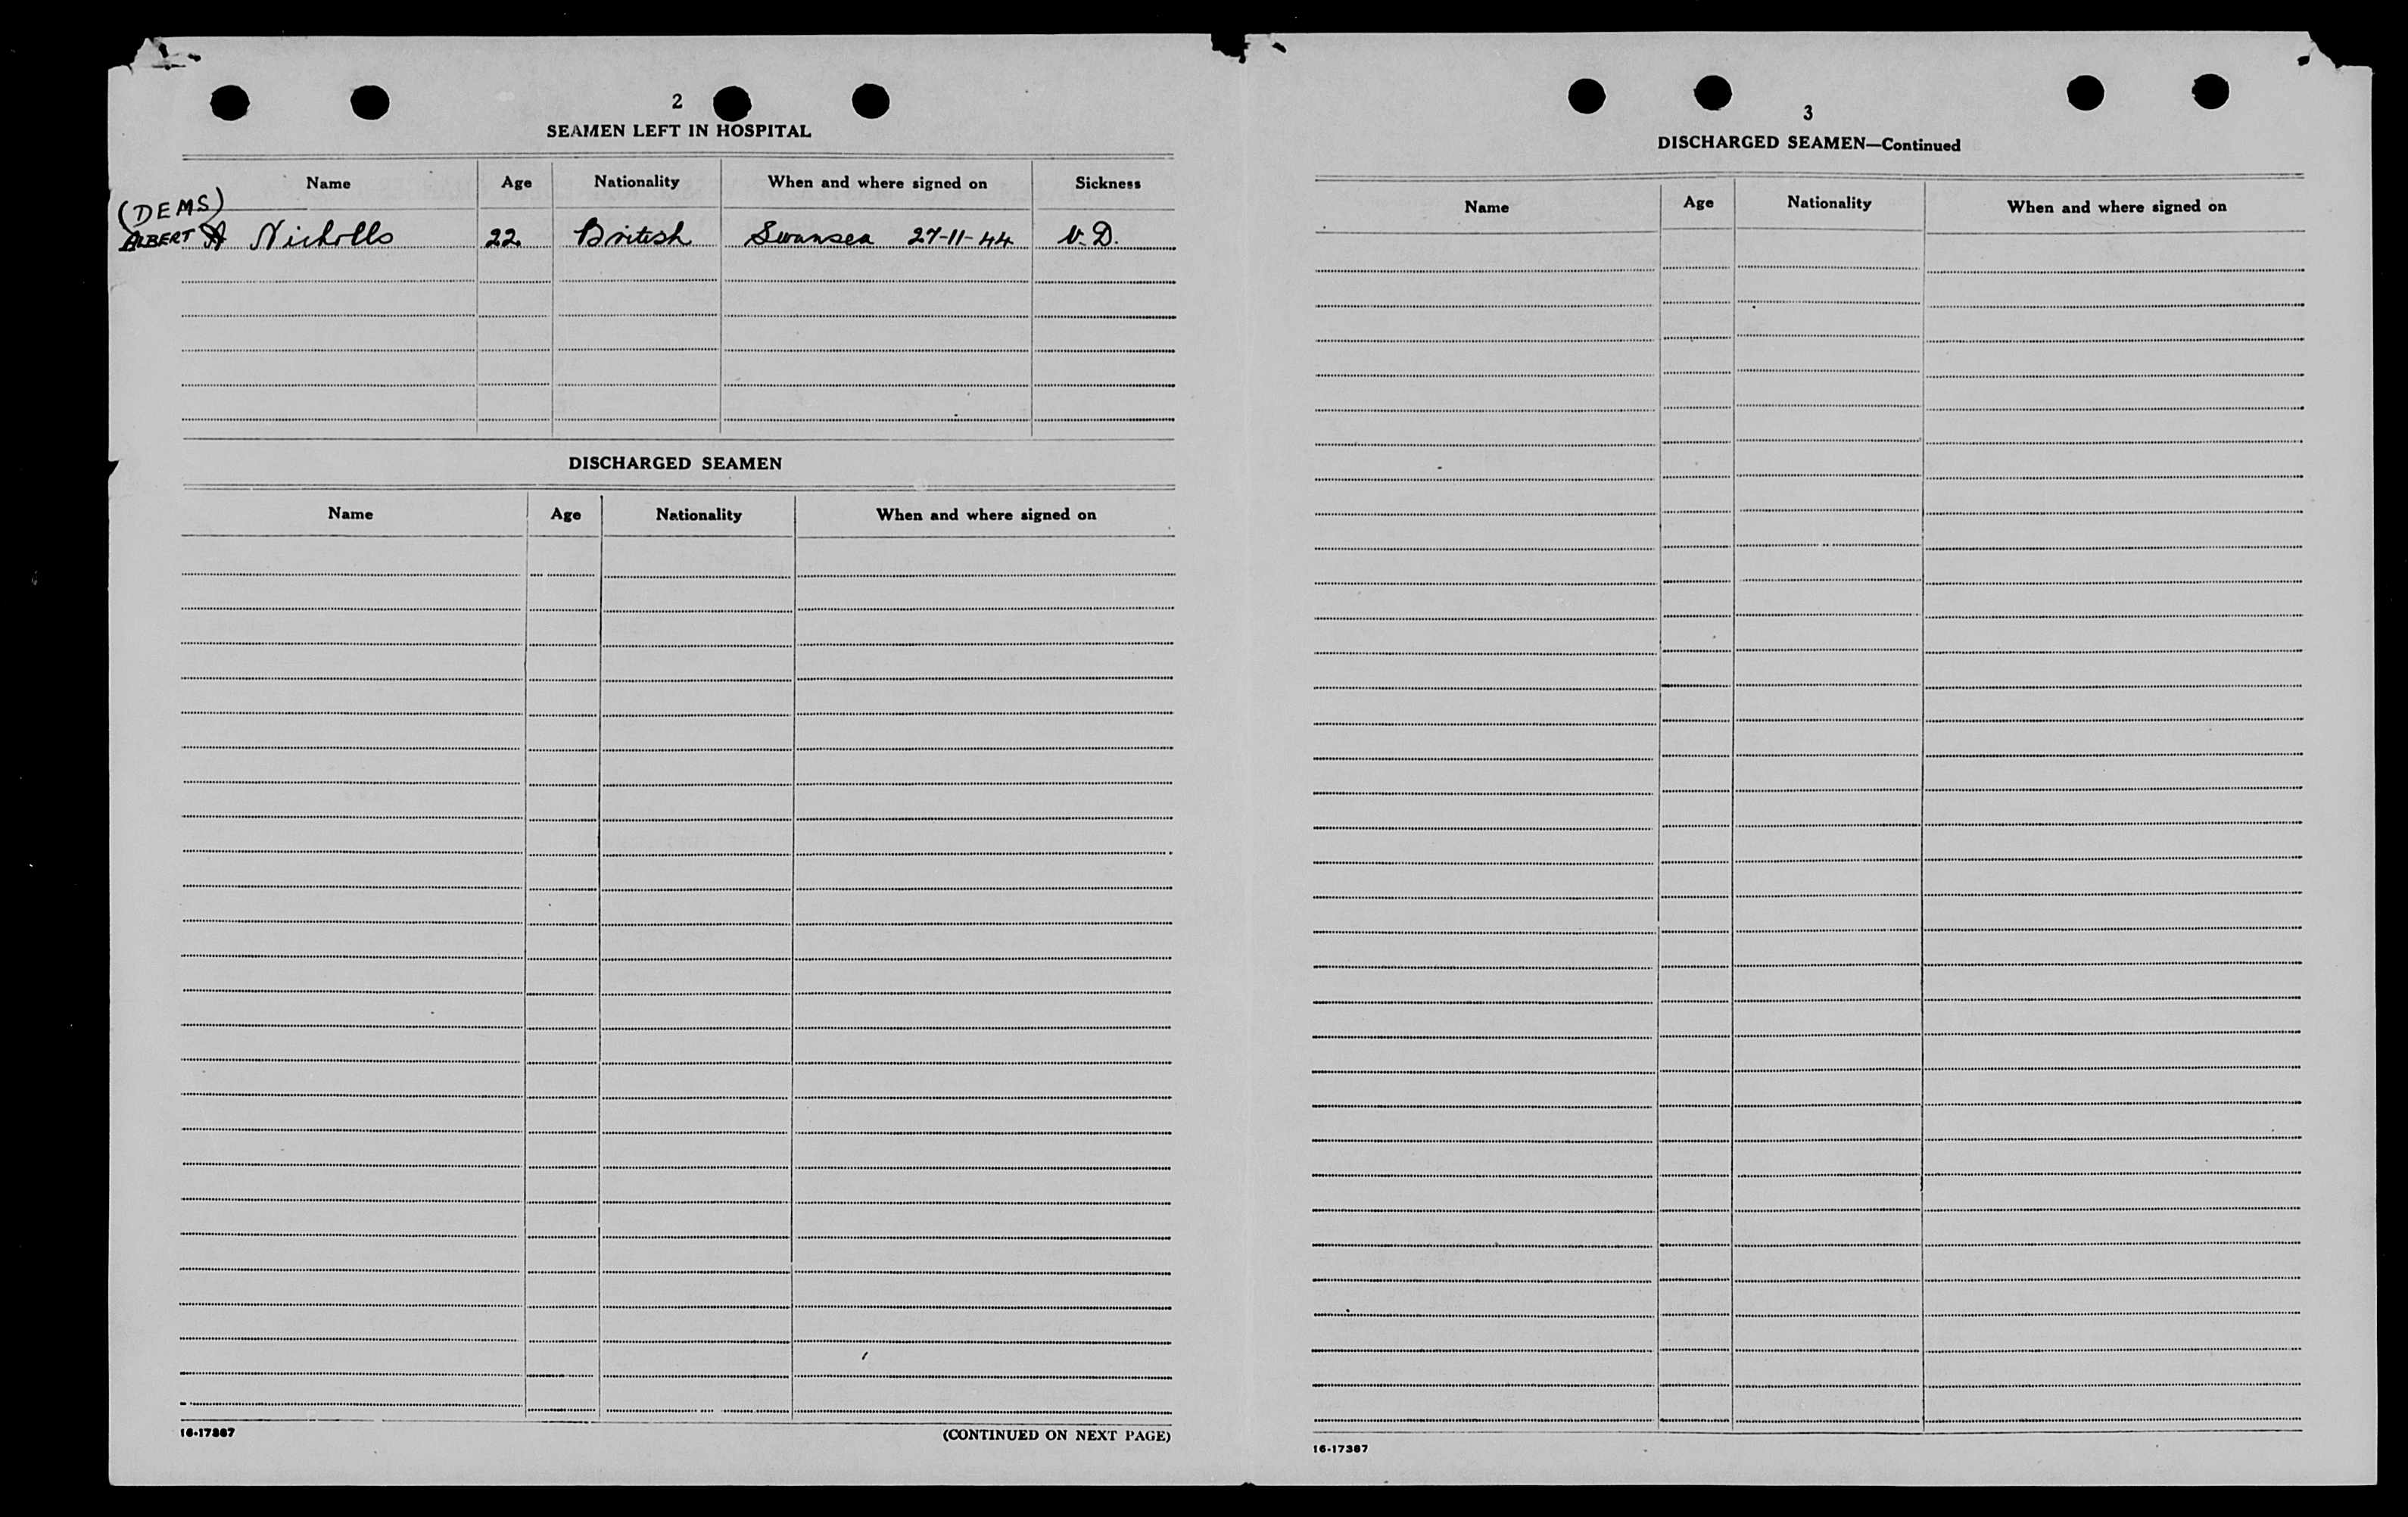 2
SEAMEN LEFT IN HOSPITAL
Name Age Nationality When and where signed on Sickness
(DEMS)
ALBERT A Nicholls 22 British Swansea 27-11-44 V.D.
DISCHARGED SEAMEN
Name Age Nationality When and where signed on
16-17387
(CONTINUED ON NEXT PAGE)
3
DISCHARGED SEAMEN—Continued
Name Age Nationality When and where signed on
16-17387